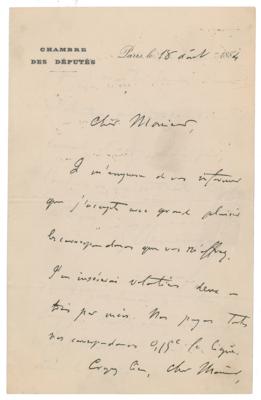 CHAMBRE
DES DÉPUTÉS
Paris, le 18 août 1884
Cher Monsieur,
Je m'empresse de vous informer
que j'accepte avec grand plaisir
les correspondances que vous m'offrez.
J'en insérerai volontiers deux ou
trois par mois. Nous payons
nos correspondances 0,15c la ligne.
Croyez bien, cher Monsieur,